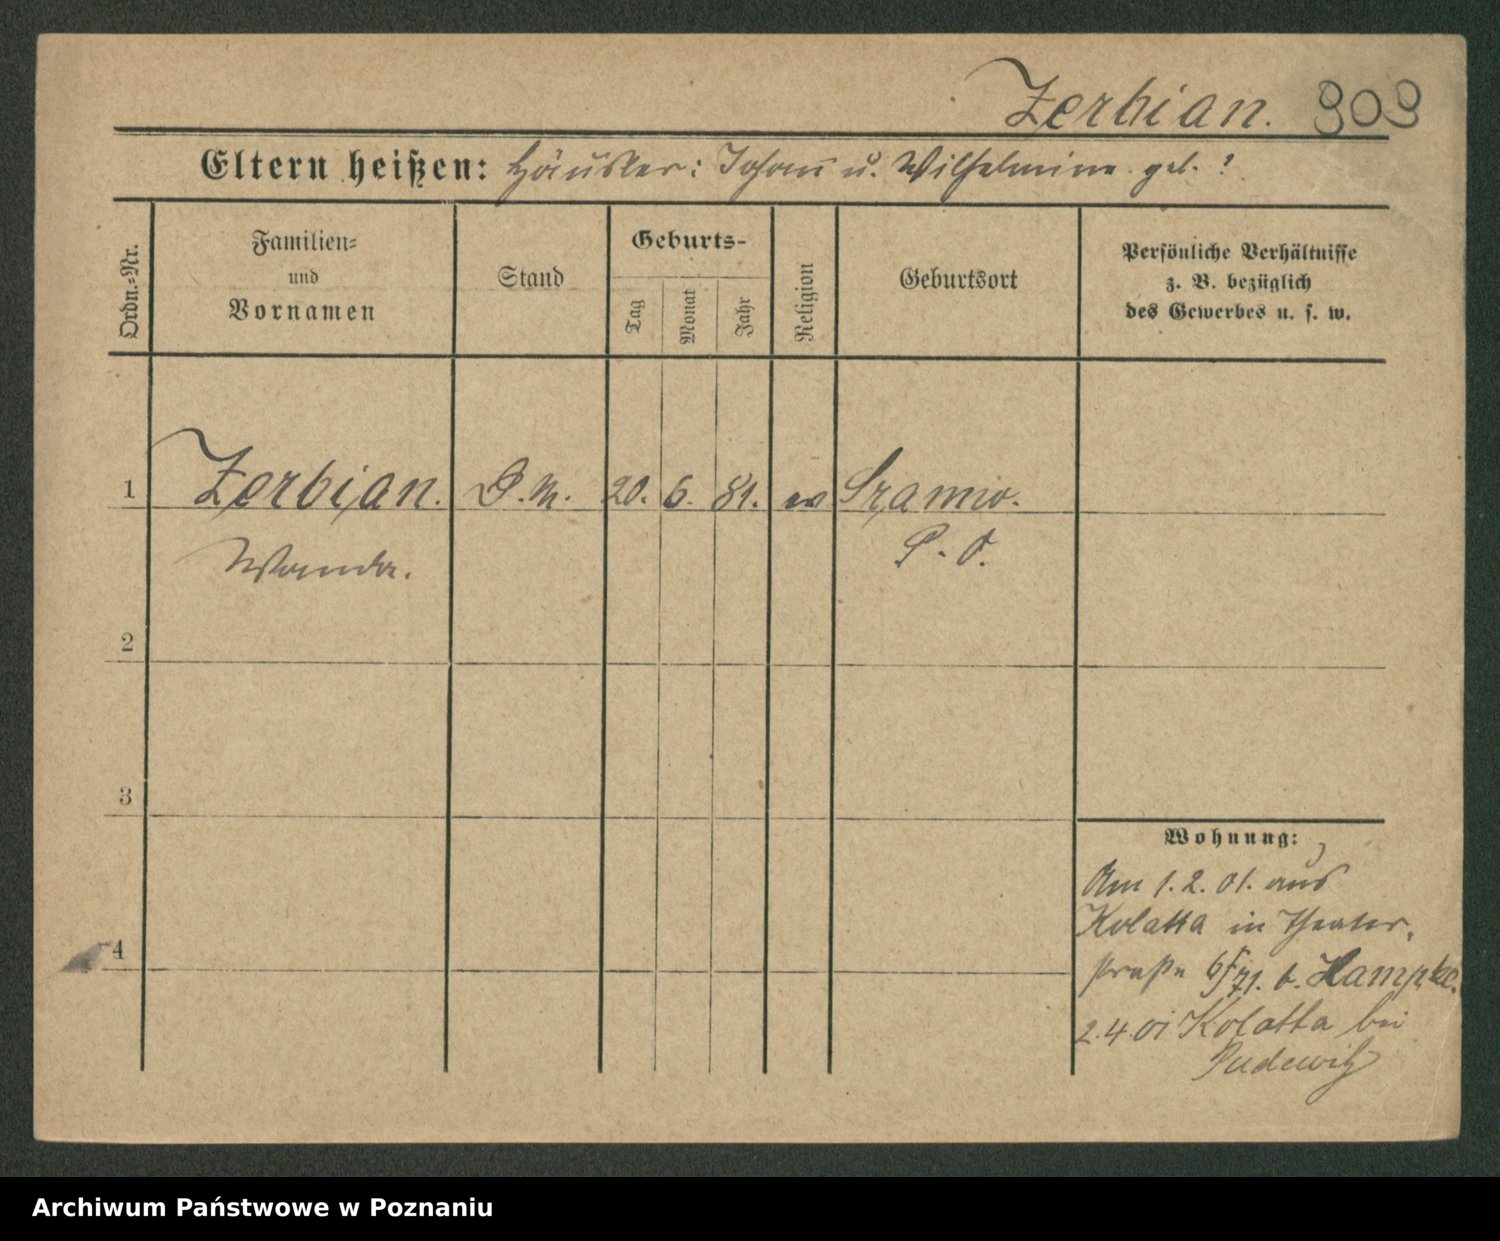 Zerbian. 303
Eltern heißen: Häusler: Johann u. Wilhelmine geb. ?
Ordn.=Nr.
Familien=
und
Vornamen
Stand
Geburts-
Tag
Monat
Jahr
Religion
Geburtsort
Persönliche Verhältnisse
z. B. bezüglich
des Gewerbes u. s. w.
1 Zerbian. D. M. 20. 6. 81. ev
P. O.
Wanda.
2
3
Wohnung:
Am 1. 2. 01. aus
Kolatta in Theater-
4
straße 6 b. Hampke.
2. 4. 01 Kolatta bei
Pudewitz
Archiwum Państwowe w Poznaniu